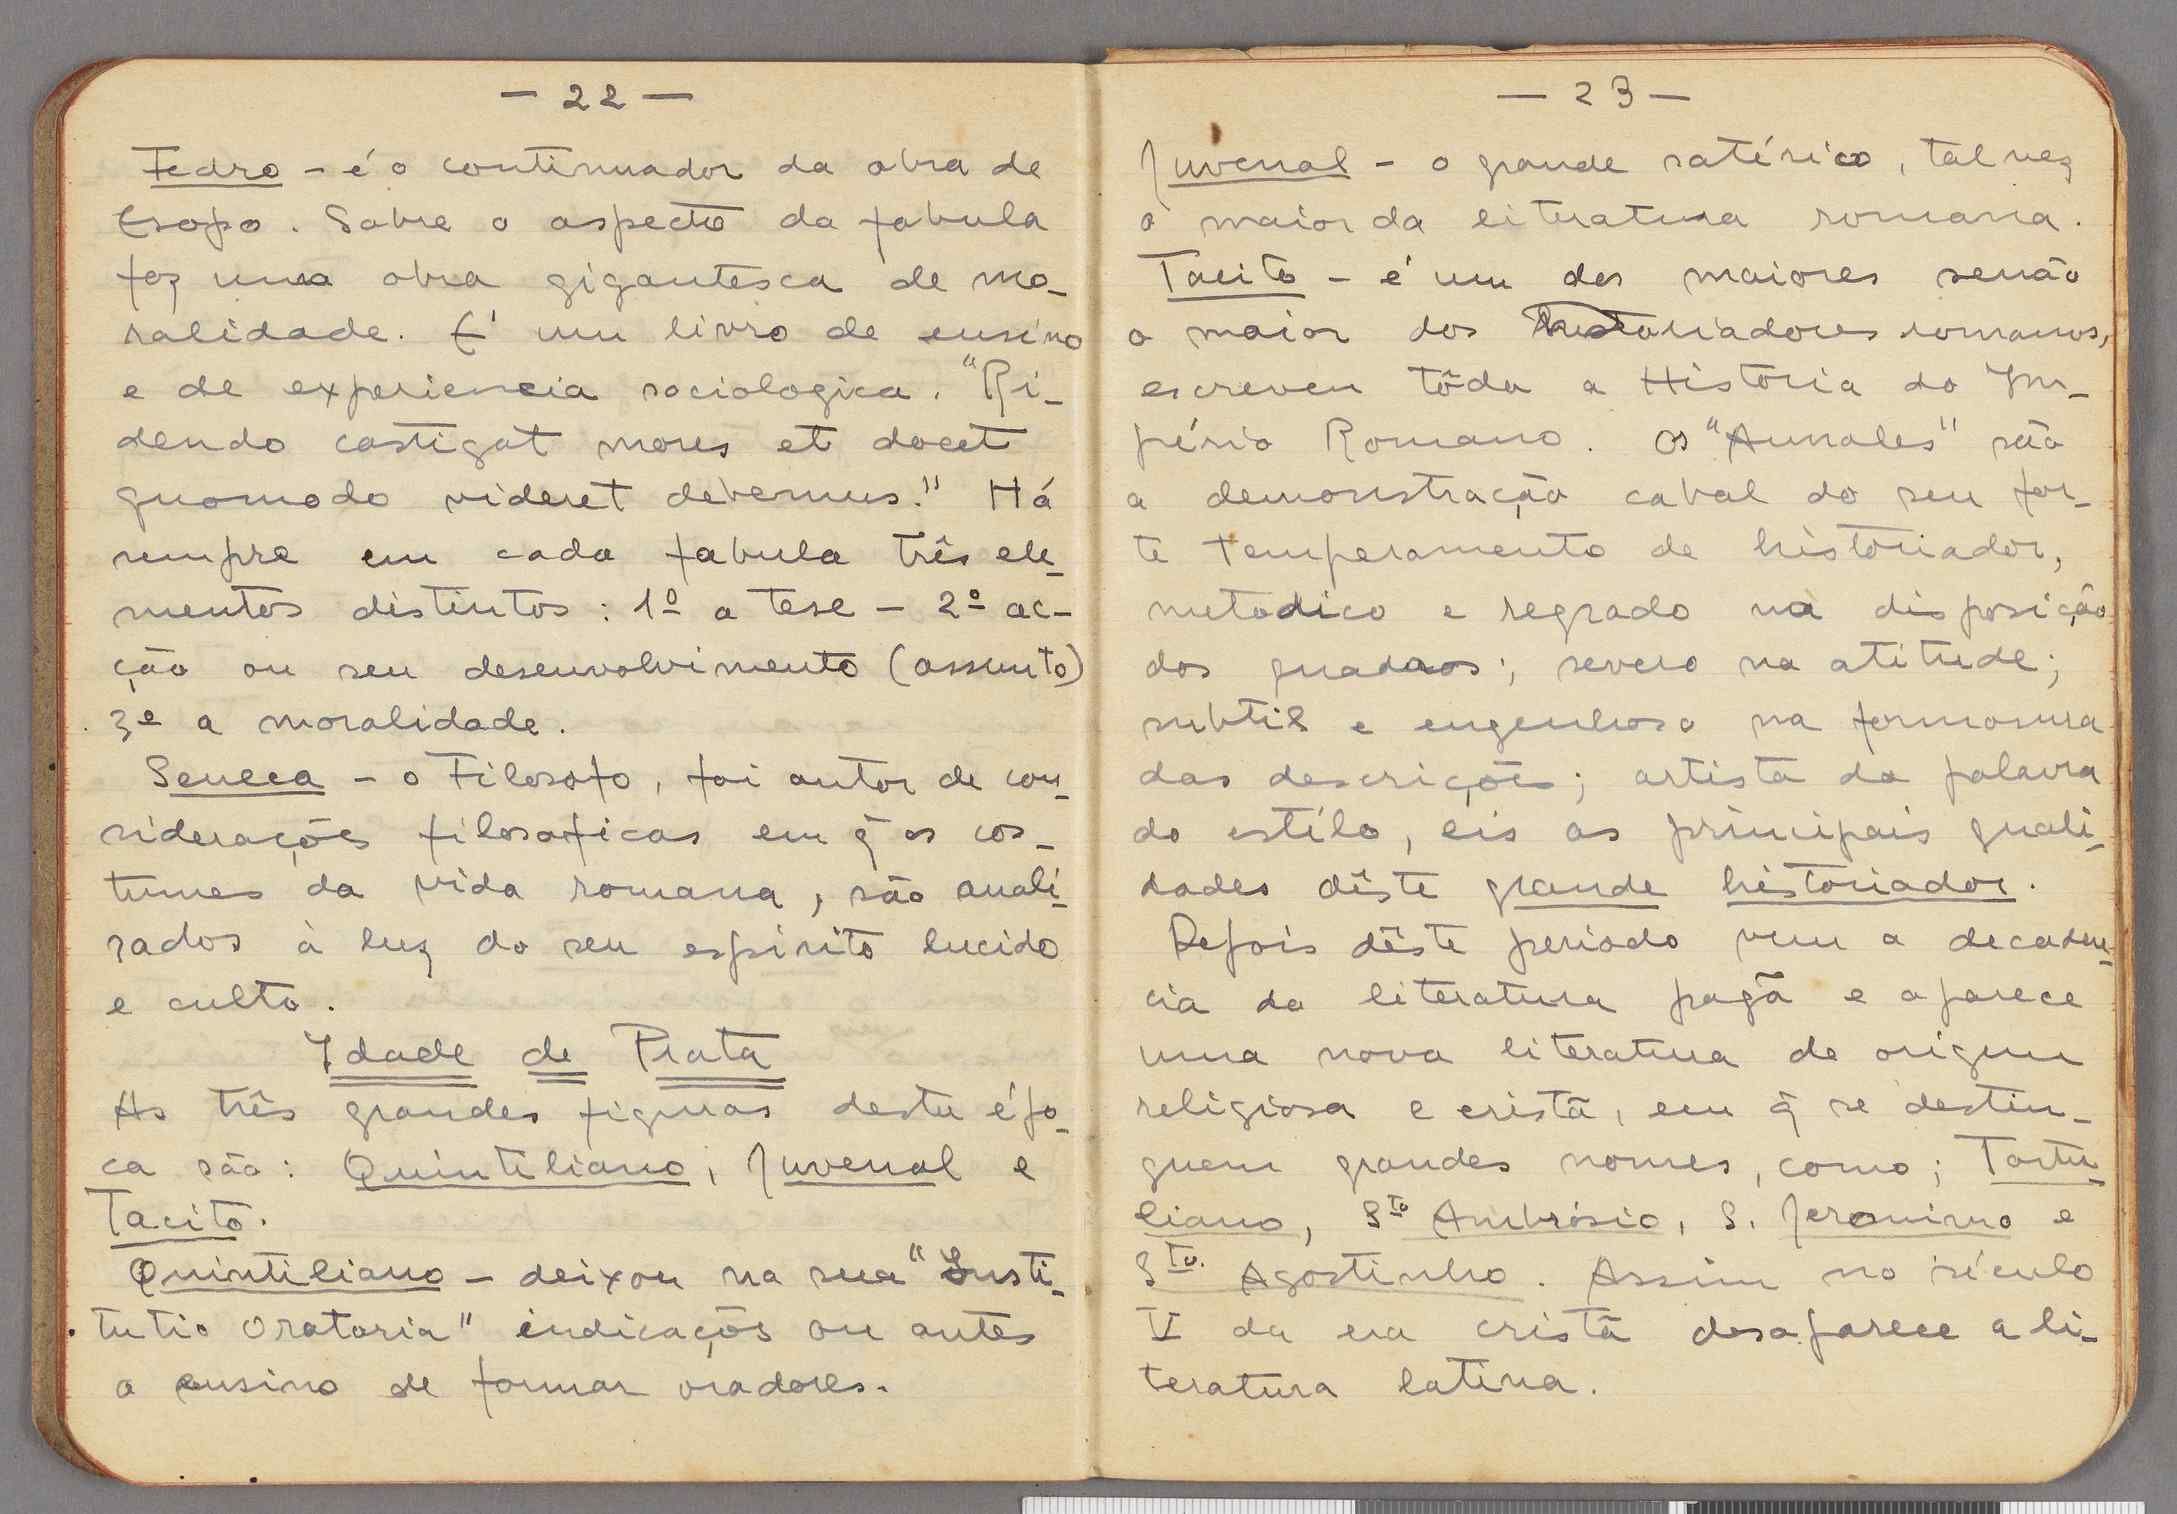 — 22 —
Fedro - é o continuador da obra de
Esopo. Sobre o aspecto da fabula
fez uma obra gigantesca de mo-
ralidade. É um livro de ensino
e de experiencia sociologica. "Ri-
dendo castigat mores et docet
quomodo videret debemus." Há
sempre em cada fabula três ele-
mentos distintos: 1º a tese - 2º ac-
ção ou seu desenvolvimento (assunto)
3ª a moralidade.
Seneca - o Filosofo, foi autor de con-
siderações filosoficas em q̃ os cos-
tumes da vida romana, são anali-
sados à luz do seu espirito lucido
e culto.
Idade de Prata
As três grandes figuras desta épo-
ca são: Quintiliano, Juvenal e
Tacito.
Quintiliano - deixou na sua "Insti-
tutio Oratoria" indicações ou antes
o ensino de formar oradores.
— 23 —
Juvenal - o grande satírico, talvez
o maior da literatura romana.
Tacito - é um dos maiores senão
o maior dos historiadores romanos,
escreveu tôda a História do Im-
pério Romano. Os "Annales" são
a demonstração cabal do seu for-
te temperamento de historiador,
metodico e regrado na disposição
dos quadros; severo na atitude;
subtil e engenhoso na formosura
das descrições; artista da palavra
do estílo, eis as principais quali-
dades dêste grande historiador.
Depois dêste periodo vem a decaden-
cia da literatura pagã e aparece
uma nova literatura de origem
religiosa e cristã, em q̃ se destin-
guem grandes nomes, como; Tertu-
liano, Sto Ambrósio, S. Jeronimo e
Sto. Agostinho. Assim no século
V da era cristã desaparece a li-
teratura latina.